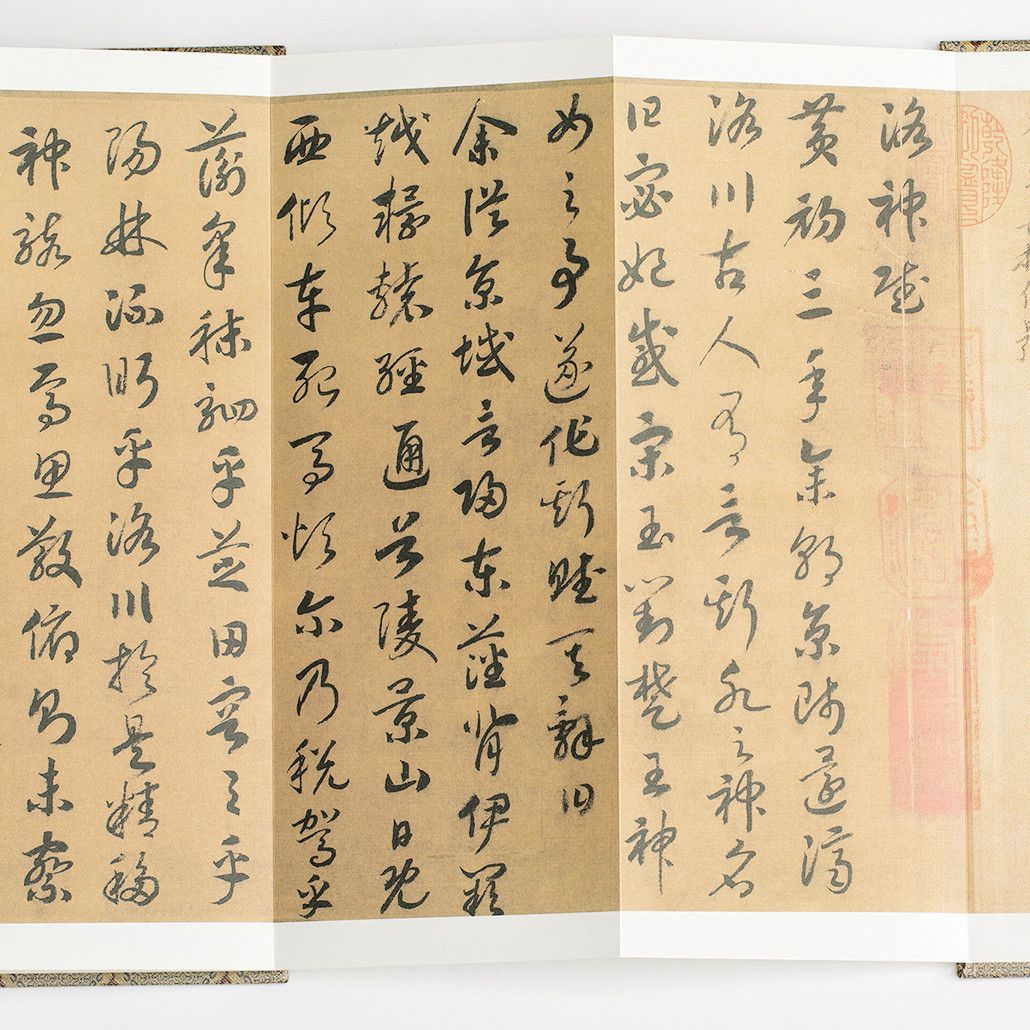 洛神賦
黃初三年余朝京師還濟
洛川古人有言斯水之神名
曰宓妃感宋玉對楚王神
女之事遂作斯賦其辭曰
余從京域言歸東藩背伊闕
越轘轅經通谷陵景山日既
西傾車殆馬煩尔乃稅駕乎
蘅皋秣駟乎芝田容與乎
陽林流眄乎洛川於是精移
神駭忽焉思散俯則未察